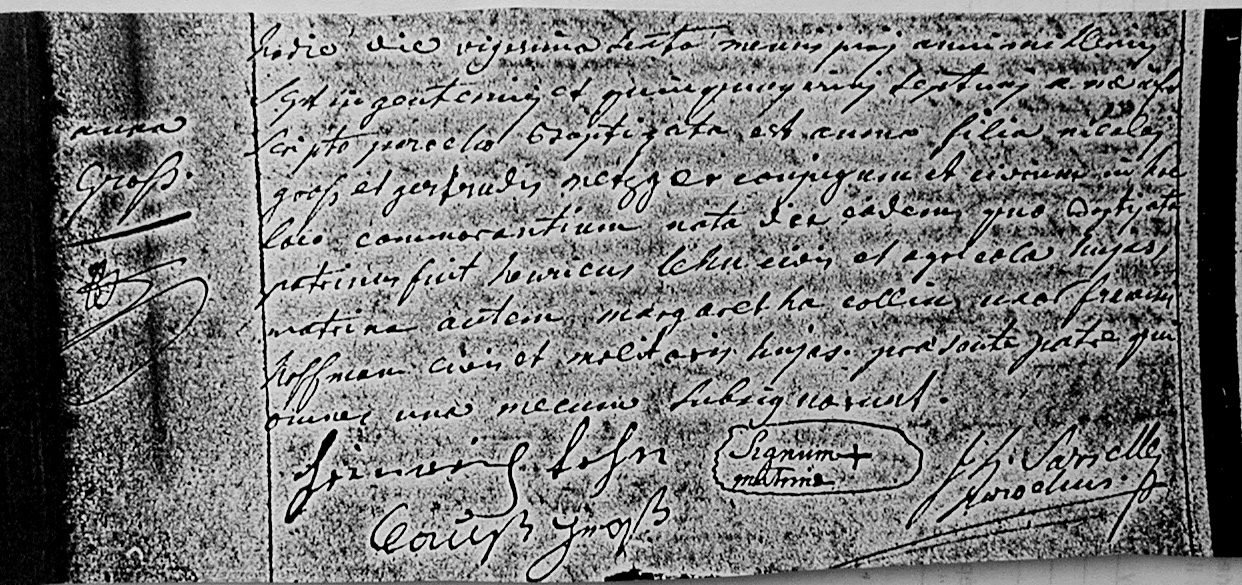 anna
Groß.
hodie die vigesima sexta mensis maij anni millesimi
septingentesimi et quinquagesimi septimi a me infra
scripto parocho baptizata est anna filia nicolaj
groß et gertrudis metzger conjugum et civium in hoc
loco commorantium nata die eadem qua baptizata
patrinus fuit henricus lehn civis et agricola hujas,
matrina autem margaretha collin uxor
hoffman civis et molitoris hujas. praesente patre qui
omnes una mecum subsignarunt.
heinrich Lehn
Signum +
matrinae
parochus.
groß